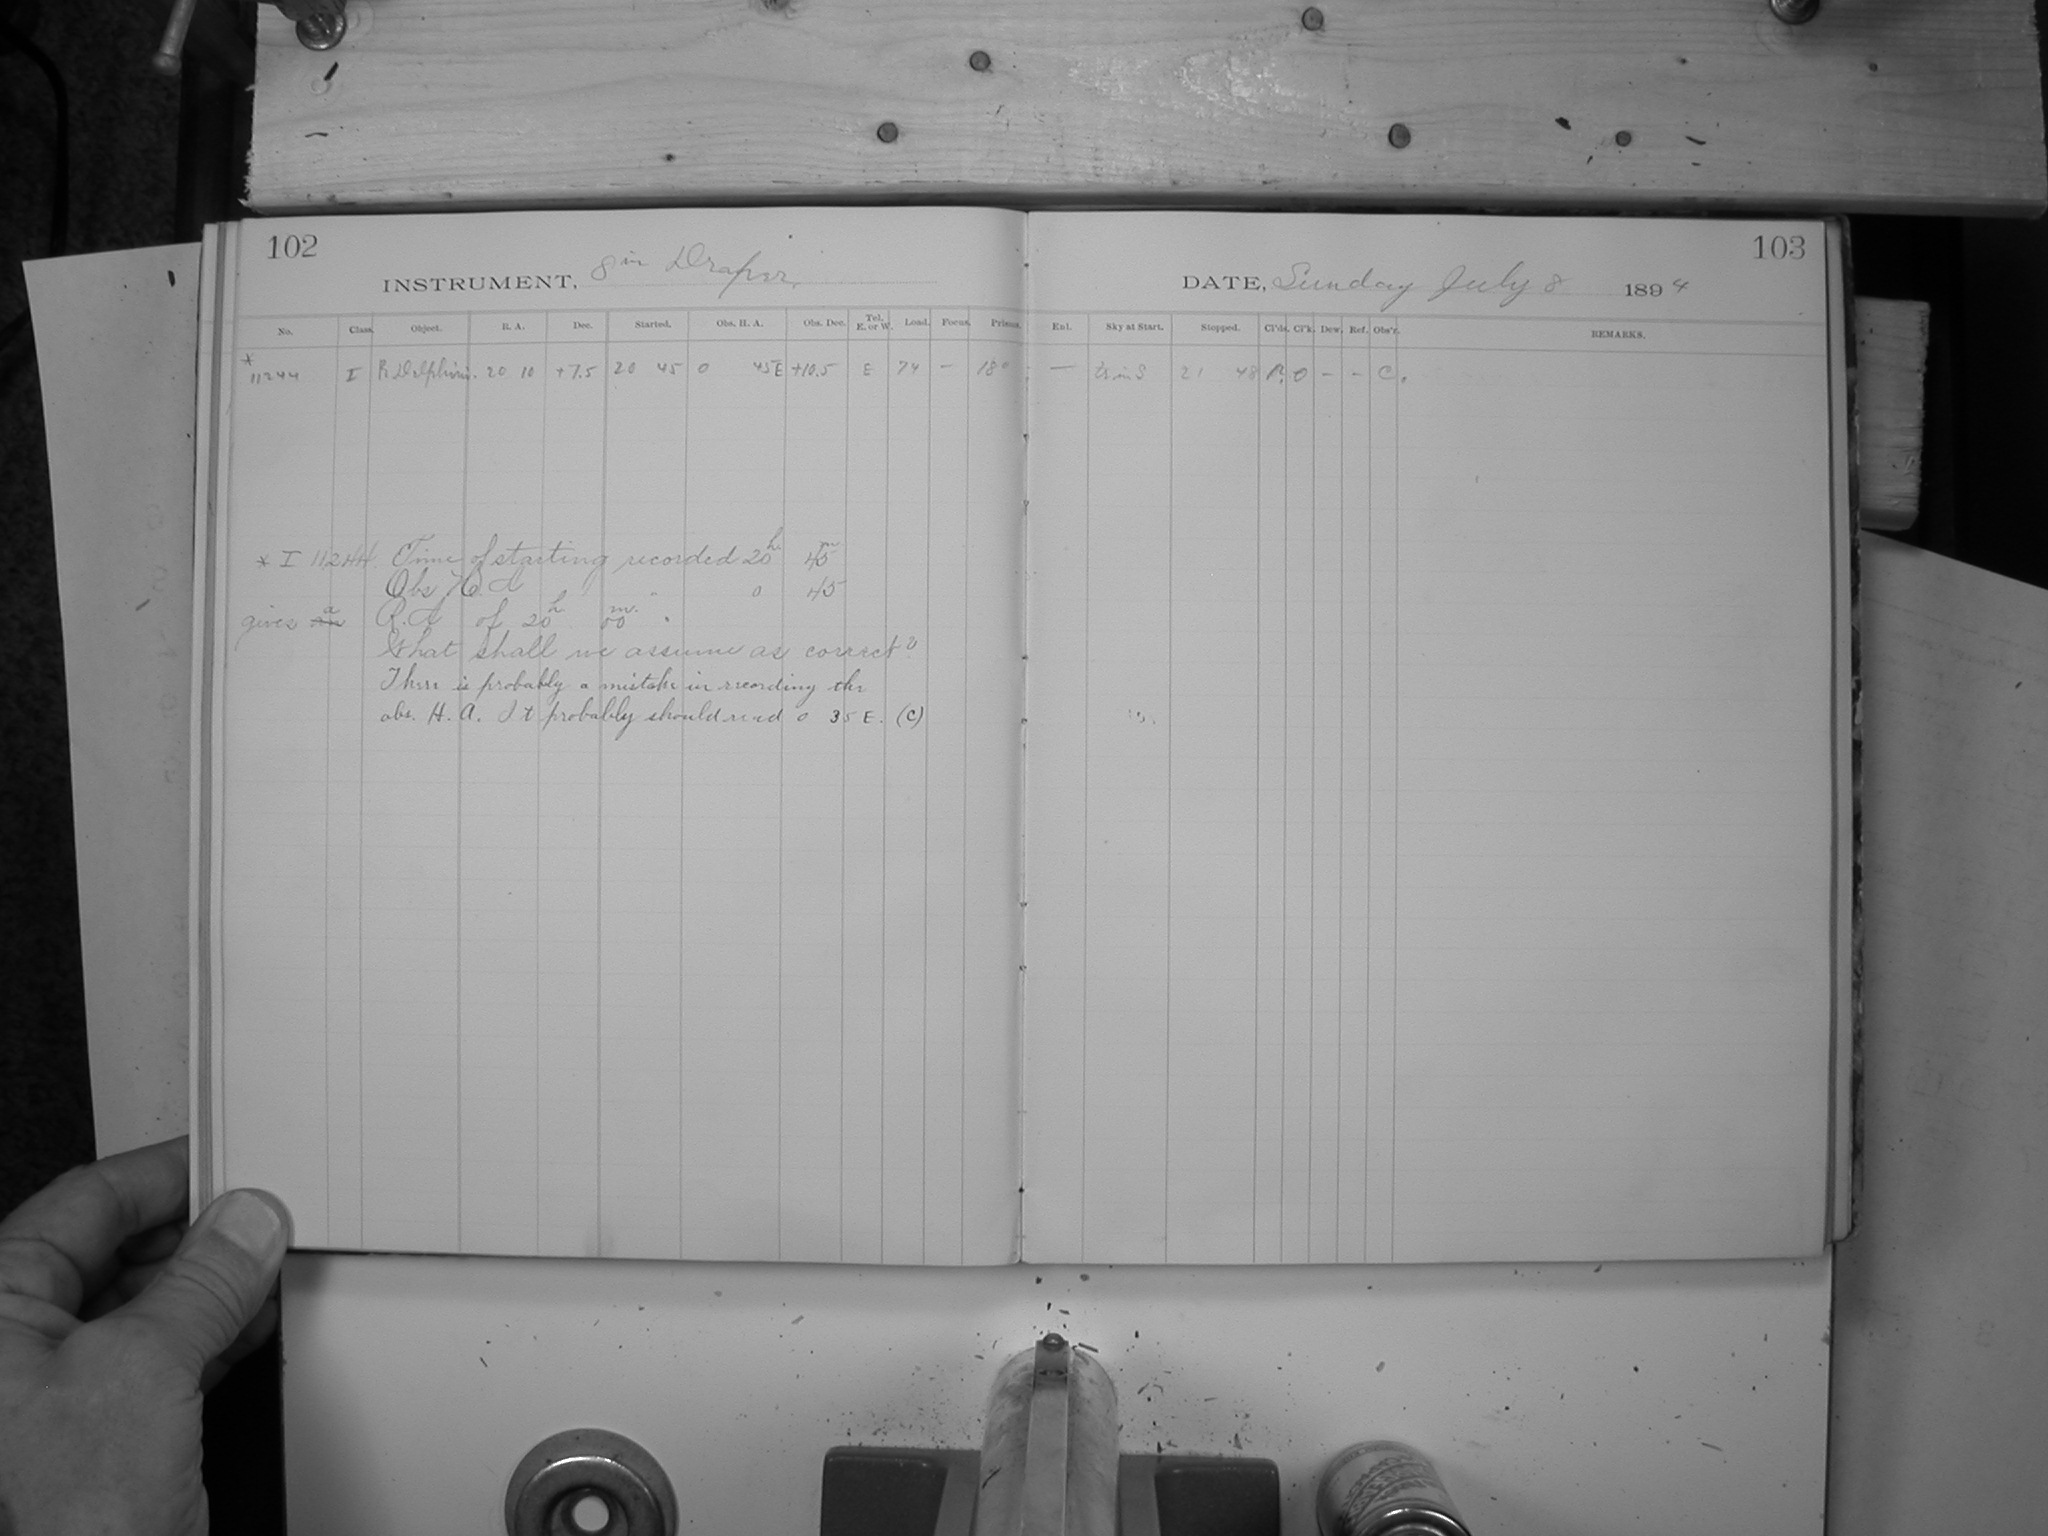 102
INSTRUMENT, 8 in Draper.
103
DATE, Sunday July 8 1894
No. Class. Object. R. A. Dec. Started. Obs. H. A. Obs. Dec. Tel. E. or W. Load. Focus. Prisms. Enl. Sky at Start. Stopped. Cl'ds. Cl'k. Dew. Ref. Obs'r. REMARKS.
* 11244 I R Delphini. 20 10 +7.5 20 45 0 45 E +10.5 E 74 - 180 — in S 21 48 0 - - C.
* I 11244 Time of starting recorded 20h 45m
Obs H.A 0 45
gives a R.A of 20h 00m.
What shall we assume as correct?
There is probably a mistake in recording the
obs. H. A. It probably should read 0 35 E. (C)